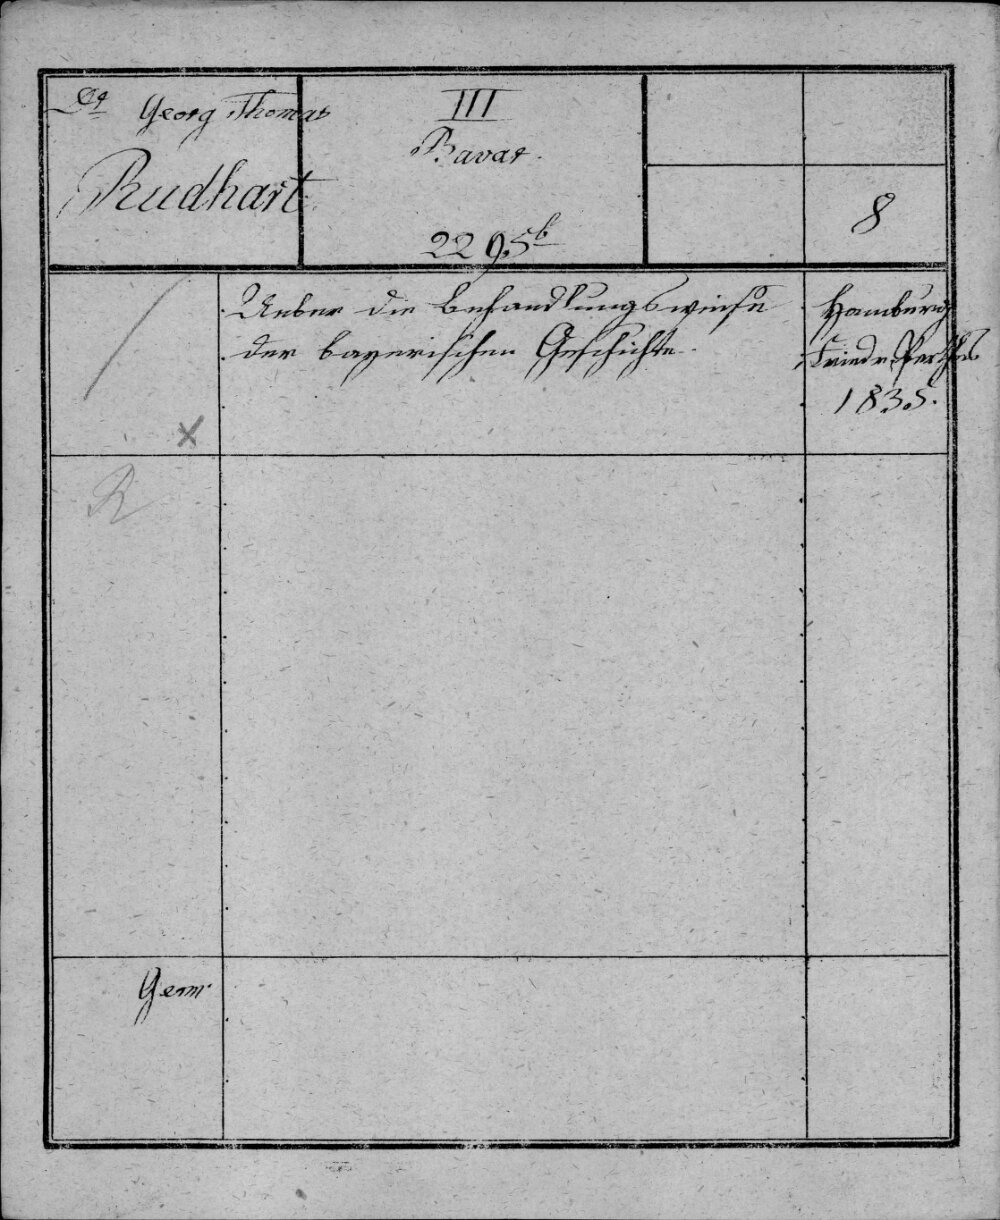 Dr Georg Thomas
Rudhart
III
Bavar.
2295b
8
Ueber die Behandlungsweise
der bayerischen Geschichte.
Hamburg
Friedr. Perthes
1835.
X
R
Germ.